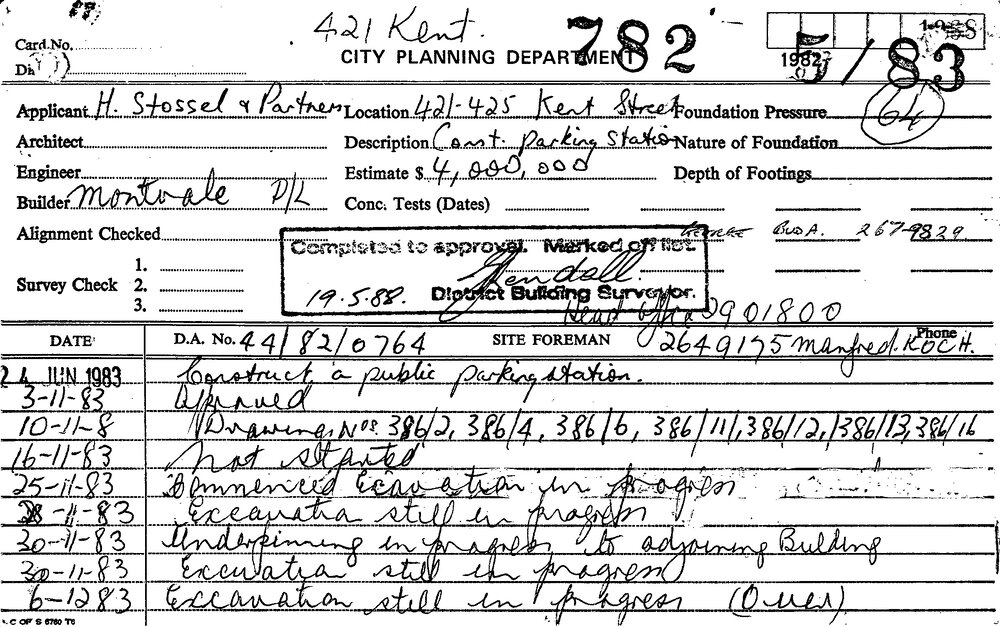 421 Kent.
782
5/83
Card No.
CITY PLANNING DEPARTMENT
1982
Applicant H. Stossel & Partners Location 421-425 Kent Street Foundation Pressure 64
Architect Description Const. parking Station Nature of Foundation
Engineer Estimate $ 4,000,000 Depth of Footings
Builder Montvale P/L Conc. Tests (Dates)
Alignment Checked 267-9829
Completed to approval. Marked off list.
Survey Check 1.
2.
3.
Kendall.
19.5.88. District Building Surveyor.
Head Office 2901800
DATE D.A. No. 44/82/0764 SITE FOREMAN 2649175 Manfred. KOCH. Phone
24 JUN 1983 Construct a public parking station.
3-11-83 Approved
10-11-8 Drawings Nos 386/2, 386/4, 386/6, 386/11, 386/12, 386/13, 386/16
16-11-83 Not started
25-11-83 Commenced Ecavation in progress
28-11-83 Excavation still in progress
30-11-83 Underpinning in progress to adjoining Building
30-11-83 Excavation still in progress
6-1283 Excavation still in progress (Over)